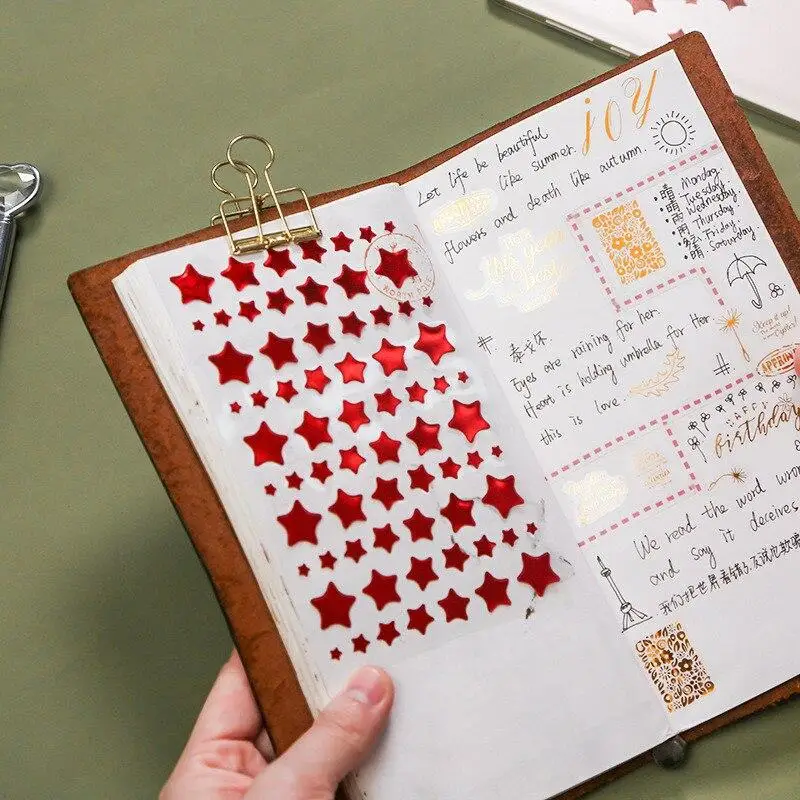 joy
Let life be beautiful
like summer.
flowers and death like autumn.
Monday
Tuesday
Wednesday
Thursday
Friday
Saturday
NORTH POLE
#. 泰戈尔
Eyes are raining for her.
Heart is holding umbrella for her.
this is love. #.
Keep it up!
HAPPY
birthday
We read the word wron
and say it deceives
我们把世界看错